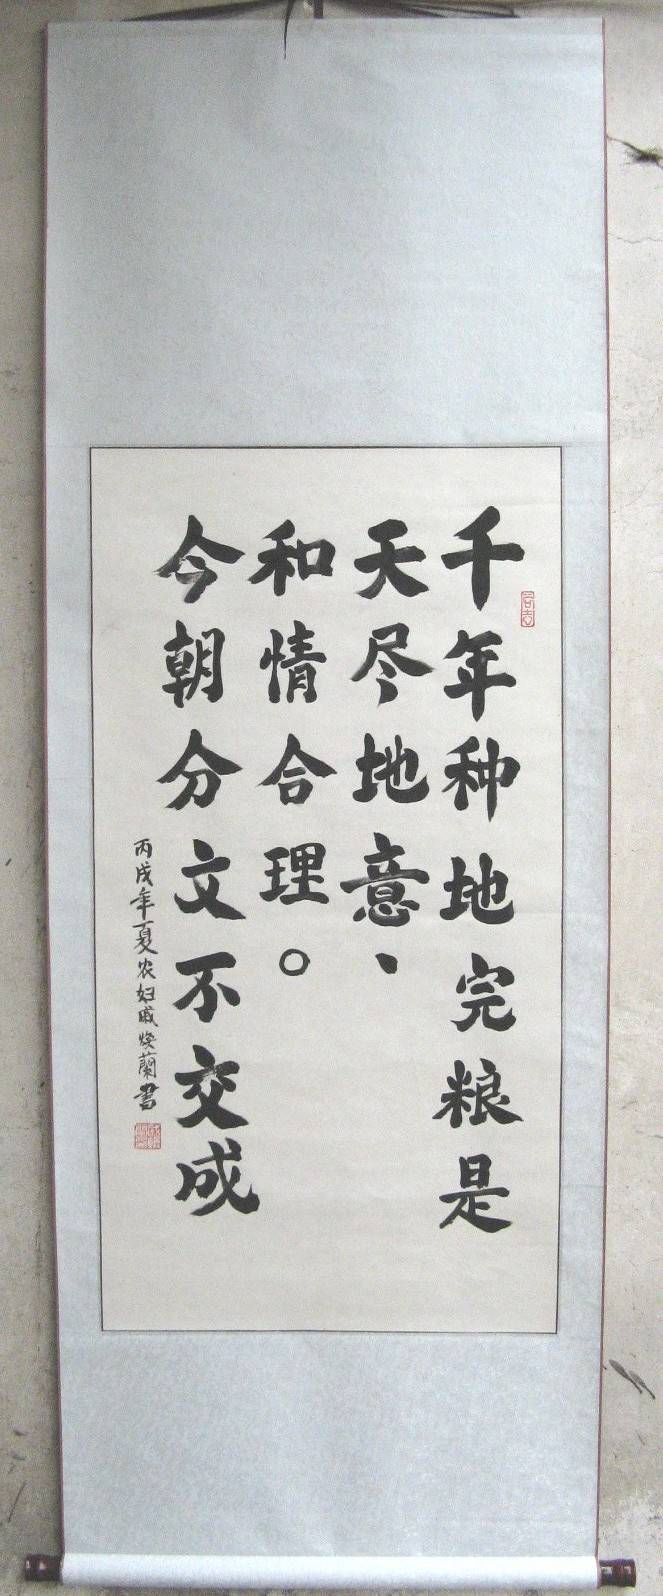 千年种地完粮是
天尽地意、
和情合理。
今朝分文不交成
丙戌年夏农妇戚焕蘭書